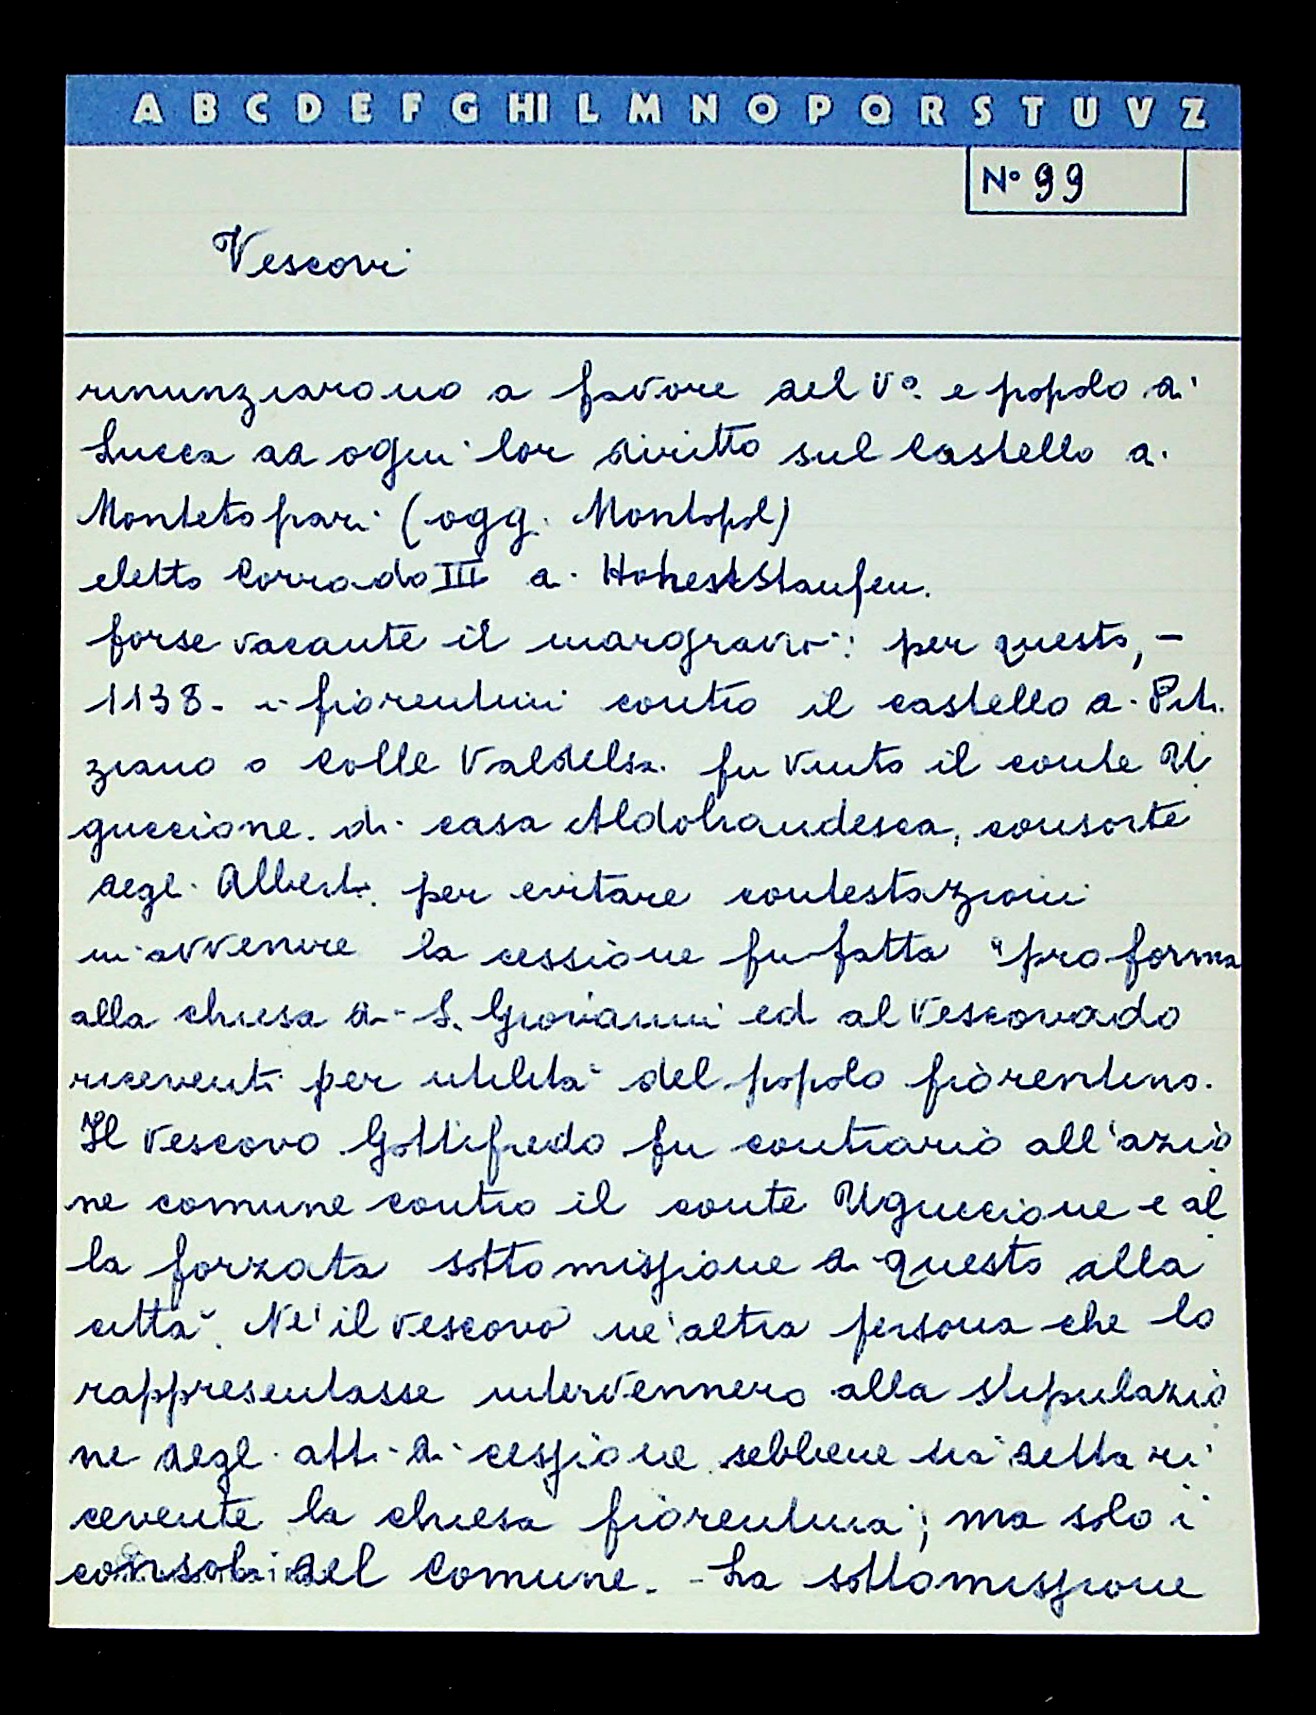 A B C D E F G HI L M N O P Q R S T U V Z
N° 99
Vescovi
rinunziarono a favore del V°. e popolo di
Lucca ad ogni lor diritto sul Castello di
Montetopari (ogg. Montopol)
eletto Corrado III di HohestStaufen.
forse vacante il margravio: per questo, -
1138. i fiorentini contro il castello di Piti
ziano o Colle Valdelsa. fu vinto il conte U
guccione. di casa Aldobrandesca, consorte
degli Alberti. per evitare contestazioni
in avvenire la cessione fu fatta "pro forma
alla chiesa di S. Giovanni ed al Vescovado
riceventi per utilità del popolo fiorentino.
Il Vescovo Gottifredo fu contrario all'azio
ne comune contro il conte Uguccione e al
la forzata sottomissione di questo alla
città. Ne' il Vescovo ne' altra persona che lo
rappresentasse intervennero alla stipulazio
ne degli atti di cessione sebbene sia detta ri
cevente la chiesa fiorentina; ma solo i
consoli del Comune. - La sottomissione